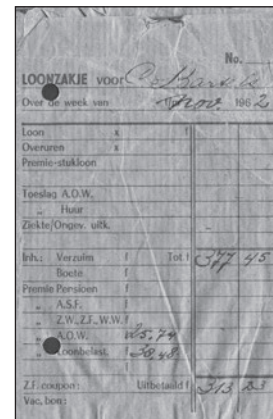 No.
LOONZAKJE voor
Over de week van Nov. 1962
Loon x f
Overuren x
Premie-stukloon
Toeslag A.O.W.
„ Huur
Ziekte/Ongev. uitk.
Inh.: Verzuim f Tot f 377 45
Boete f
Premie Pensioen f
„ A.S.F. f
„ Z.W., Z.F., W.W. f
„ A.O.W. f 25,74
„ Loonbelast. f 38,48
f
Z.F. coupon: Uitbetaald f 313 23
Vac. bon: